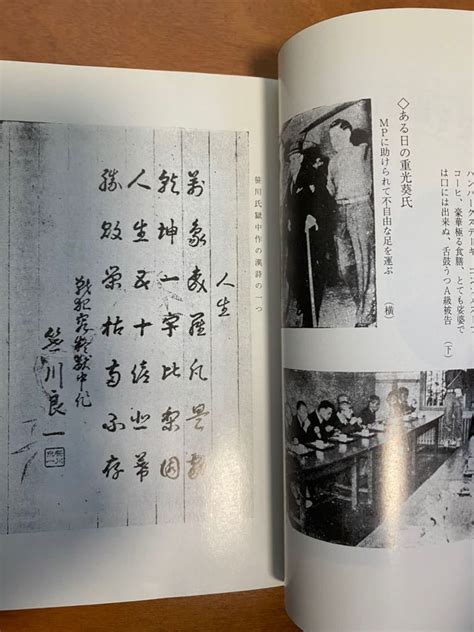 コーヒ、豪華極る食膳、とても娑婆で
は口には出来ぬ、舌鼓うつA級被告
(下)
◇ある日の重光葵氏
MPに助けられて不自由な足を運ぶ
(横)
笹川氏獄中作の漢詩の一つ
人生
萬象森羅凡是
乾坤一宇比
人生五十
勝敗栄枯両不存
戦犯容疑獄中作
笹川良一